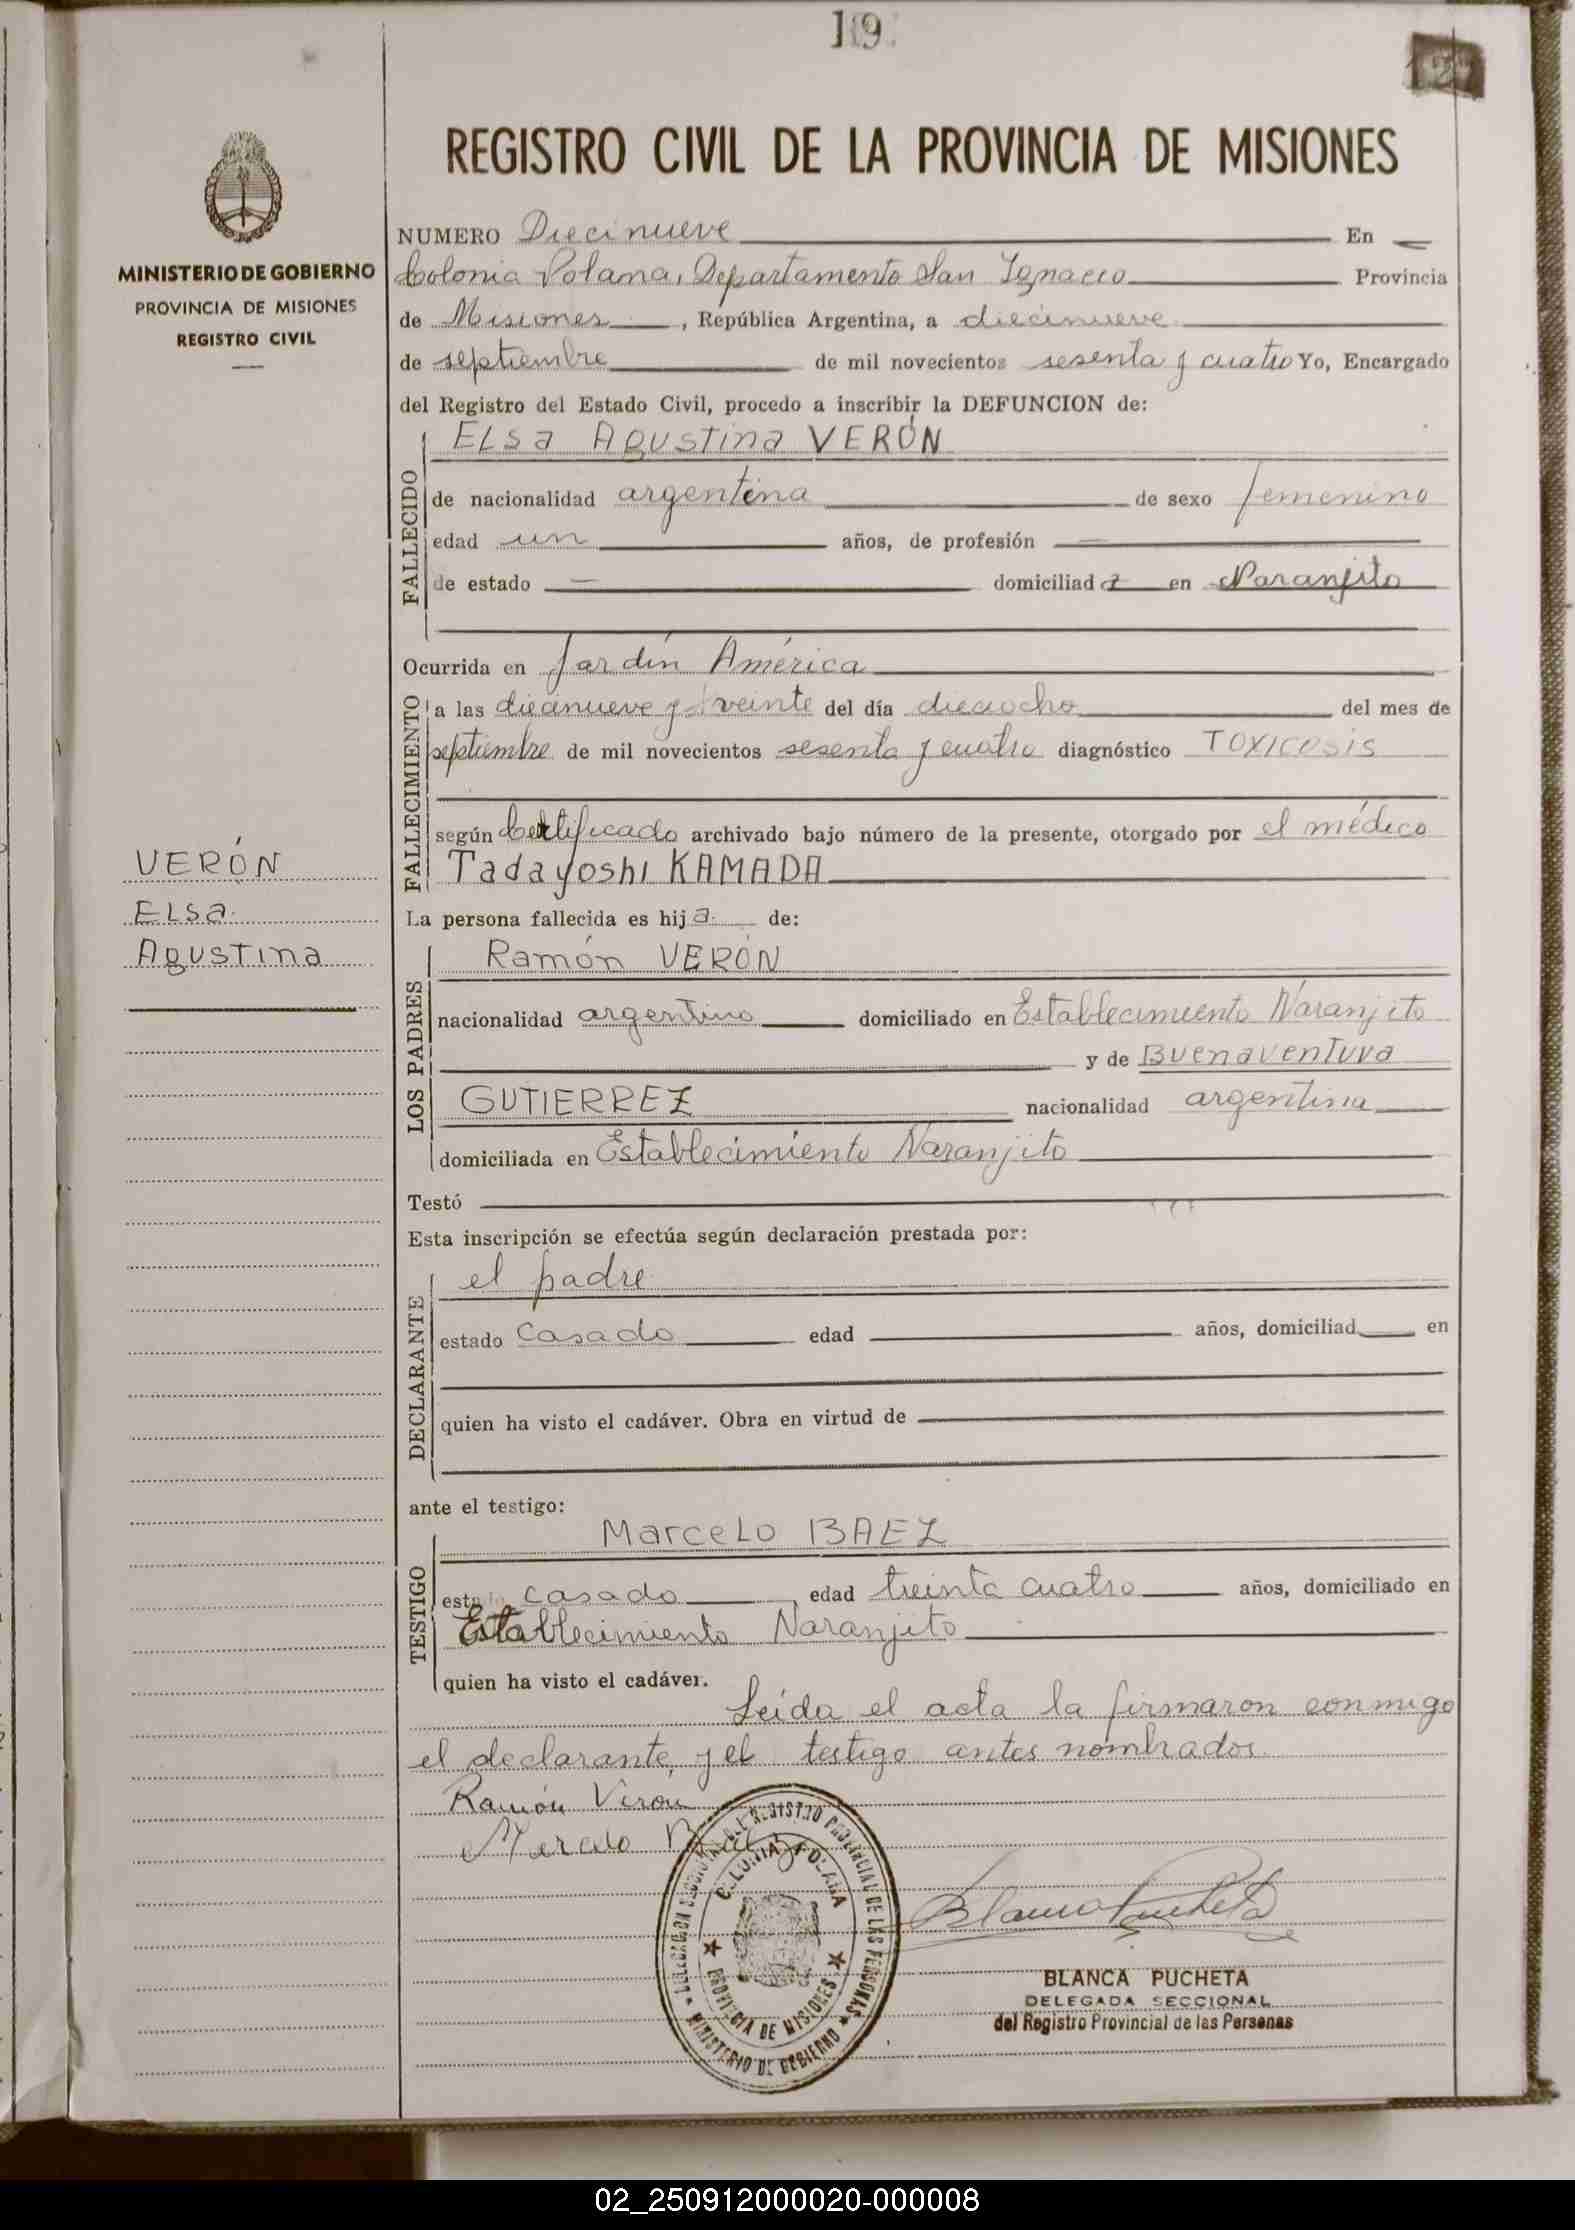 19
REGISTRO CIVIL DE LA PROVINCIA DE MISIONES
MINISTERIO DE GOBIERNO
PROVINCIA DE MISIONES
REGISTRO CIVIL
NUMERO Diecinueve En
Colonia Polana, Departamento San Ignacio Provincia
de Misiones, República Argentina, a diecinueve
de septiembre de mil novecientos sesenta y cuatro Yo, Encargado
del Registro del Estado Civil, procedo a inscribir la DEFUNCION de:
FALLECIDO
Elsa Agustina VERÓN
de nacionalidad argentina de sexo femenino
edad un años, de profesión —
de estado — domiciliada en Naranjito
Ocurrida en Jardín América
FALLECIMIENTO
a las diecinueve y veinte del día dieciocho del mes de
septiembre de mil novecientos sesenta y cuatro diagnóstico TOXICOSIS
según Certificado archivado bajo número de la presente, otorgado por el médico
Tadayoshi KAMADA
VERÓN
Elsa
Agustina
La persona fallecida es hija de:
LOS PADRES
Ramón VERÓN
nacionalidad argentino domiciliado en Establecimiento Naranjito
y de Buenaventura
GUTIERREZ nacionalidad argentina
domiciliada en Establecimiento Naranjito
Testó
Esta inscripción se efectúa según declaración prestada por:
DECLARANTE
el padre
estado casado edad años, domiciliad en
quien ha visto el cadáver. Obra en virtud de
ante el testigo:
TESTIGO
Marcelo BAEZ
estado casado, edad treinta cuatro años, domiciliado en
Establecimiento Naranjito
quien ha visto el cadáver.
Leída el acta la firmaron conmigo
el declarante y el testigo antes nombrados.
Ramón Veron
Marcelo Baez
DELEGACION SECCIONAL DEL REGISTRO PROVINCIAL DE LAS PERSONAS
COLONIA POLANA
PROVINCIA DE MISIONES
MINISTERIO DE GOBIERNO
Blanca Pucheta
BLANCA PUCHETA
DELEGADA SECCIONAL
del Registro Provincial de las Personas
02_250912000020-000008